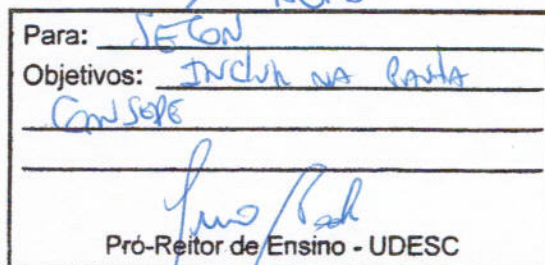 Para: SECON
Objetivos: INCLUIR NA PAUTA
CONSEPE
Pró-Reitor de Ensino - UDESC